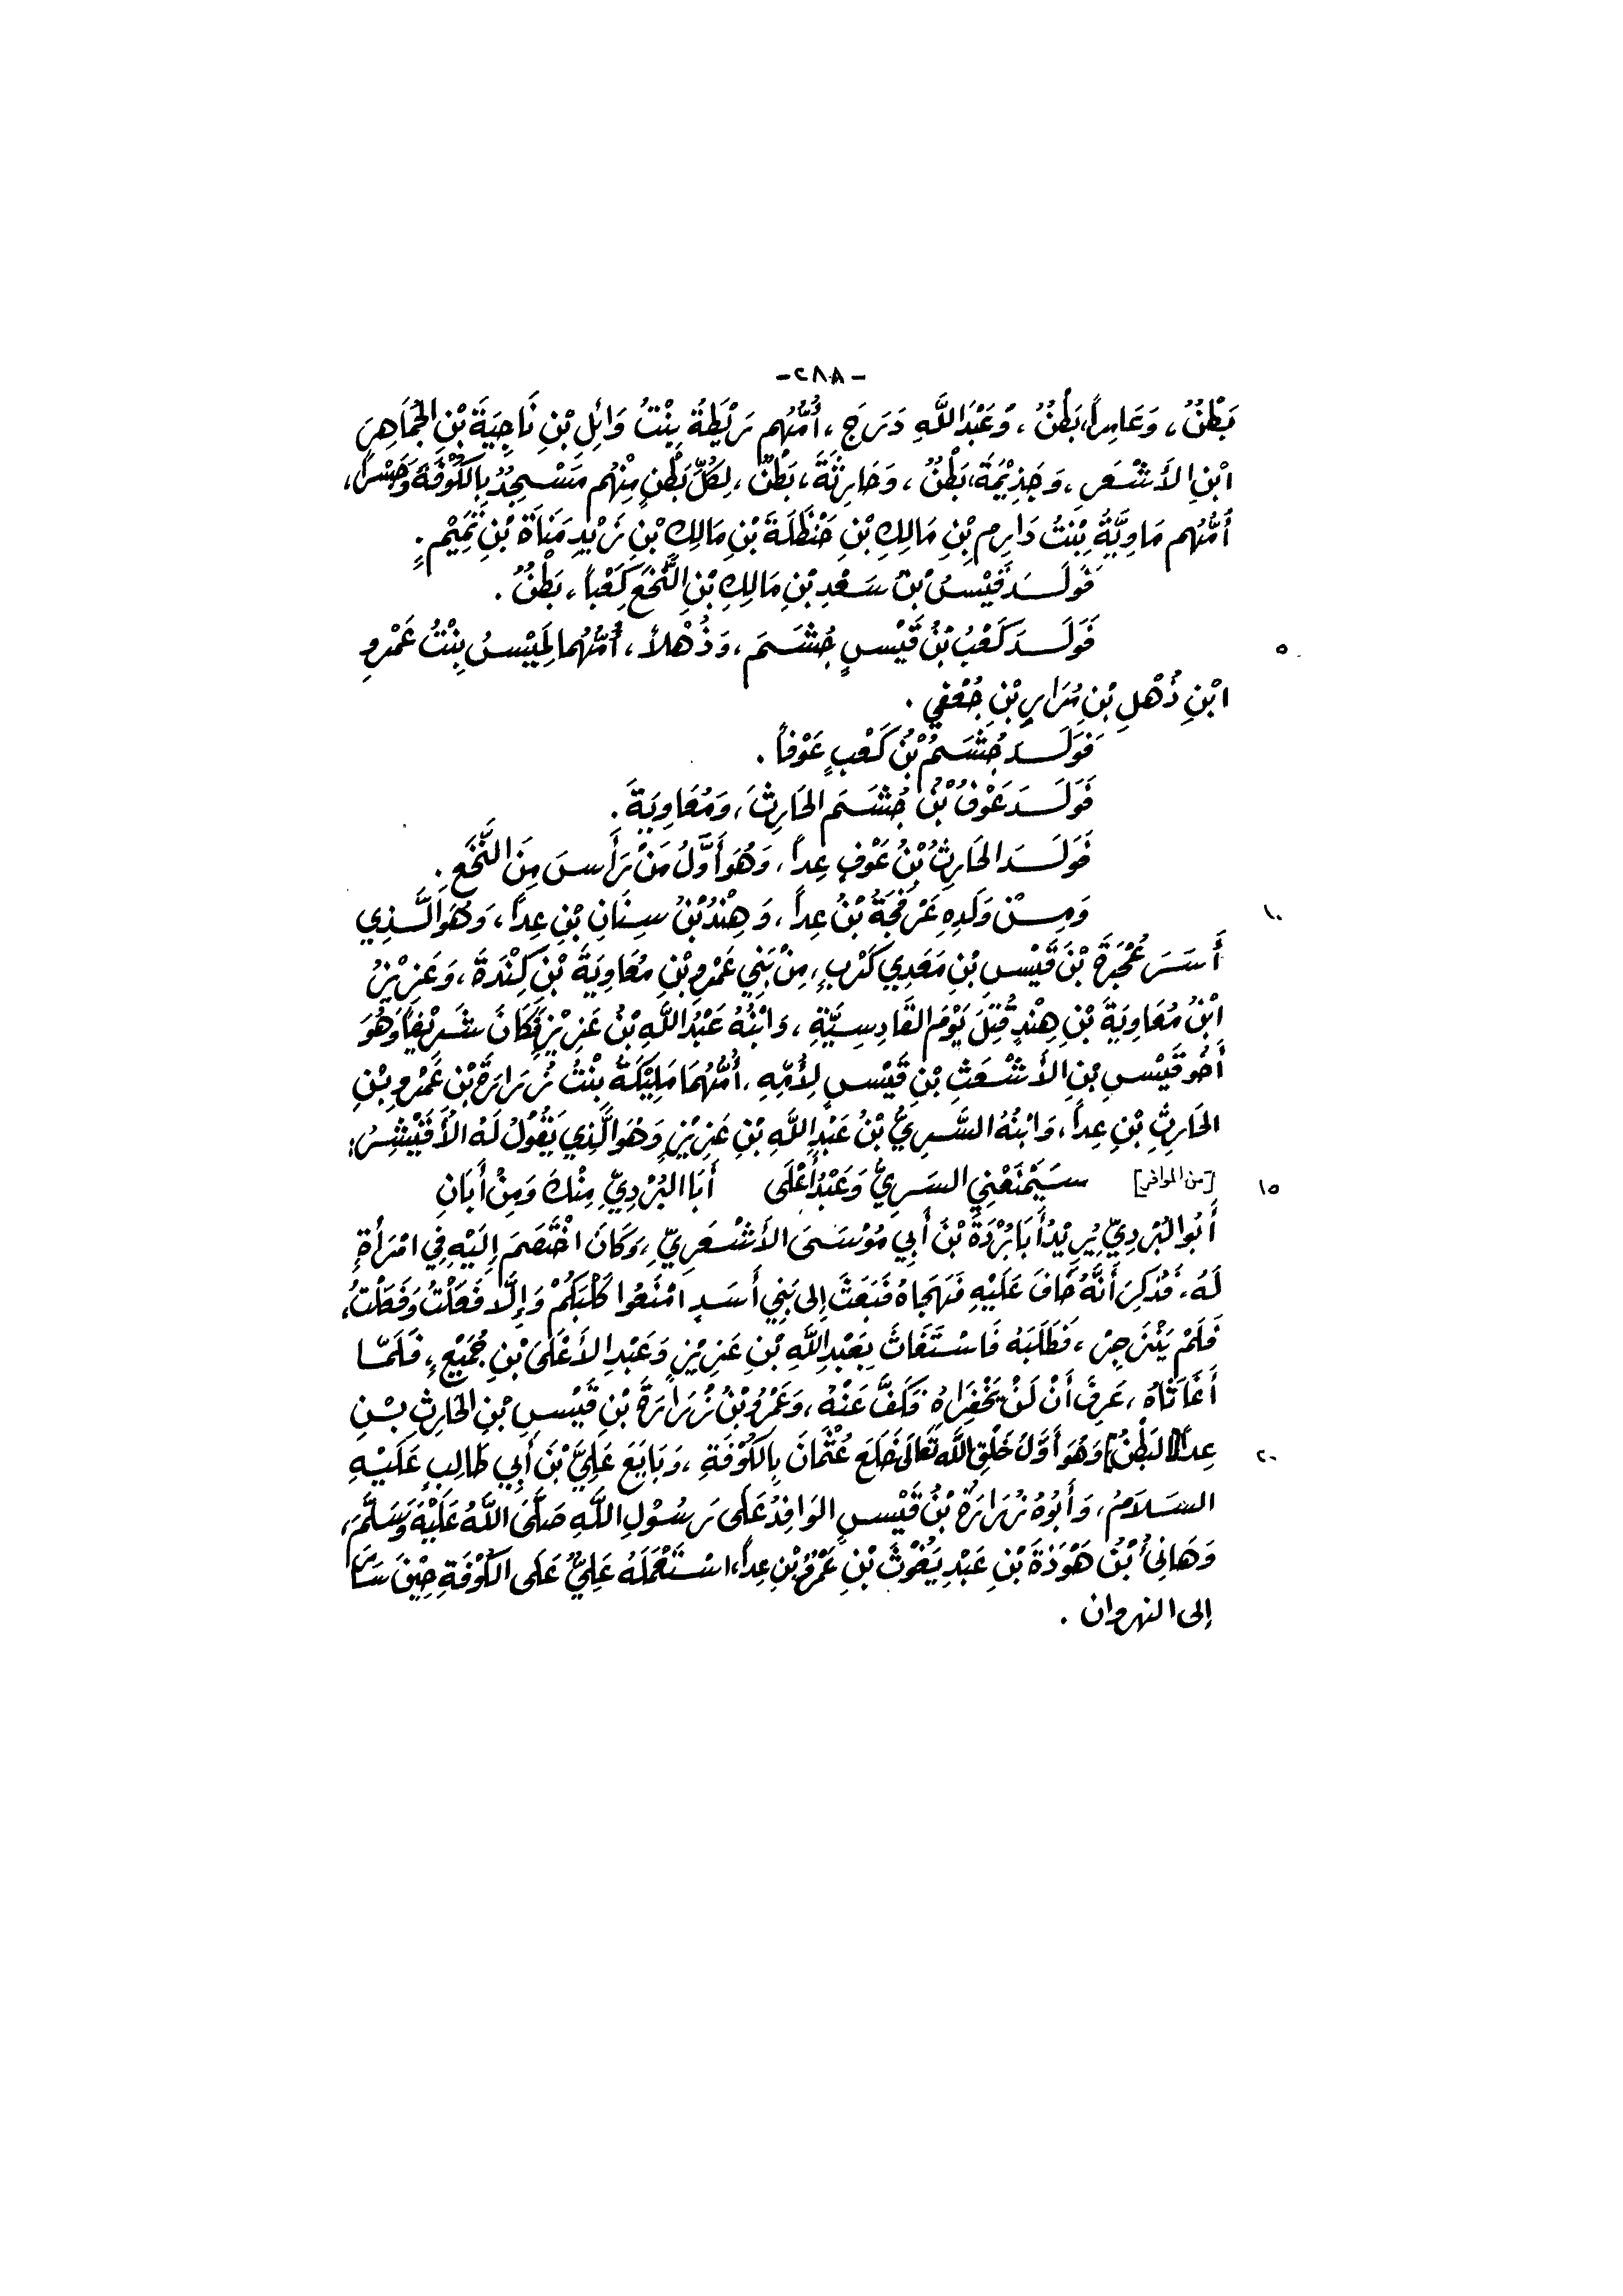 -٢٨٨-
بَطْنٌ، وَعَامِراً، بَطْنٌ، وَعَبْدَ اللَّهِ دَرَجَ، أُمُّهُم رَيْطَةُ بِنْتُ وَائِلِ بْنِ نَاجِيَةَ بْنِ الجُمَاهِرِ
ابْنِ الأَشْعَرِ، وَجَذِيْمَةَ، بَطْنٌ، وَحَارِثَةَ، بَطْنٌ، لِكُلِّ بَطْنٍ مِنْهُم مَسْجِدٌ بِالكُوْفَةِ وَحِسْلَ،
أُمُّهُم مَاوِيَّةُ بِنْتُ دَارِمِ بْنِ مَالِكِ بْنِ حَنْظَلَةَ بْنِ مَالِكِ بْنِ زَيْدِ مَنَاةَ بْنِ تَمِيْمٍ.
فَوَلَدَ قَيْسُ بْنُ سَعْدِ بْنِ مَالِكِ بْنِ النَّخَعِ كَعْباً، بَطْنٌ.
٥ فَوَلَدَ كَعْبُ بْنُ قَيْسٍ جُشَمَ، وَذُهْلاً، أُمُّهُما لَمِيْسُ بِنْتُ عَمْرِو
ابْنِ ذُهْلِ بْنِ مُرَارِ بْنِ جُعْفِي.
فَوَلَدَ جُشَمُ بْنُ كَعْبٍ عَوْفاً.
فَوَلَدَ عَوْفُ بْنُ جُشَمَ الحَارِثَ، وَمُعَاوِيَةَ.
فَوَلَدَ الحَارِثُ بْنُ عَوْفٍ عِداً، وَهُوَ أَوَّلُ مَنْ رَأَسَ مِنَ النَّخَعِ.
١٠ وَمِنْ وَلَدِهِ عَرْفَجَةُ بْنُ عِداً، وَهِنْدُ بْنُ سِنَانِ بْنِ عِداً، وَهُوَ الَّذِي
أَسَرَ عُجْرَةَ بْنَ قَيْسِ بْنِ مَعْدِي كَرْبٍ، مِنْ بَنِي عَمْرِو بْنِ مُعَاوِيَةَ بْنِ كِنْدَةَ، وَعَزِيْزُ
ابْنُ مُعَاوِيَةَ بْنِ هِنْدٍ قُتِلَ يَوْمَ القَادِسِيَّةِ، وَابْنُهُ عَبْدُ اللَّهِ بْنُ عَزِيْزٍ فَكَانَ شَرِيْفاً وَهُوَ
أَخُو قَيْسِ بْنِ الأَشْعَثِ بْنِ قَيْسٍ لِأُمِّهِ، أُمُّهُمَا مَلِيْكَةُ بِنْتُ زُرَارَةَ بْنِ عَمْرِو بْنِ
الحَارِثِ بْنِ عِداً، وَابْنُهُ السَّرِيُّ بْنُ عَبْدِ اللَّهِ بْنِ عَزِيْزٍ وَهُوَ الَّذِي يَقُوْلُ لَهُ الأُقَيْشِرُ:
١٥ [من الوافر] سَيَمْنَعُنِي السَرِيُّ وَعَبْدُ أَعْلَى أَبَا البُرْدِيِّ مِنْكَ وَمِنْ أَبَانِ
أَبُو البُرْدِيِّ يُرِيْدُ أَبَا بُرْدَةَ بْنَ أَبِي مُوْسَى الأَشْعَرِيِّ، وَكَانَ اخْتَصَمَ إِلَيْهِ فِي امْرَأَةٍ
لَهُ، فَذُكِرَ أَنَّهُ حَافَ عَلَيْهِ فَهَجَاهُ فَبَعَثَ إِلى بَنِي أَسَدٍ امْنَعُوا كَلْبَكُمْ وَإِلَّا فَعَلْتُ وَفَعَلْتُ،
فَلَمْ يَنْزَجِرْ، فَطَلَبَهُ فَاسْتَغَاثَ بِعَبْدِ اللَّهِ بْنِ عَزِيْزٍ وَعَبْدِ الأَعْلَى بْنِ جُمَيْعٍ، فَلَمَّا
أَغَاثَاهُ، عَرِفَ أَنْ لَنْ يَخْفِرَاهُ فَكَفَّ عَنْهُ، وَعَمْرُو بْنُ زُرَارَةَ بْنِ قَيْسِ بْنِ الحَارِثِ بْنِ
٢٠ عِداً [البَطْنُ] وَهُوَ أَوَّلُ خَلْقِ اللَّهِ تَعَالَى خَلَعَ عُثْمَانَ بِالكُوْفَةِ، وَبَايَعَ عَلِيَّ بْنَ أَبِي طَالِبٍ عَلَيْهِ
السَلَامُ، وَأَبُوْهُ زُرَارَةُ بْنُ قَيْسٍ الوَافِدُ عَلَى رَسُوْلِ اللَّهِ صَلَّى اللَّهُ عَلَيْهِ وَسَلَّمَ،
وَهَانِئُ بْنُ هَوْذَةَ بْنِ عَبْدِ يَغُوْثَ بْنِ عَمْرِو بْنِ عِداً، اسْتَعْمَلَهُ عَلِيٌّ عَلَى الكُوْفَةِ حِيْنَ سَارَ
إلى النهروان.